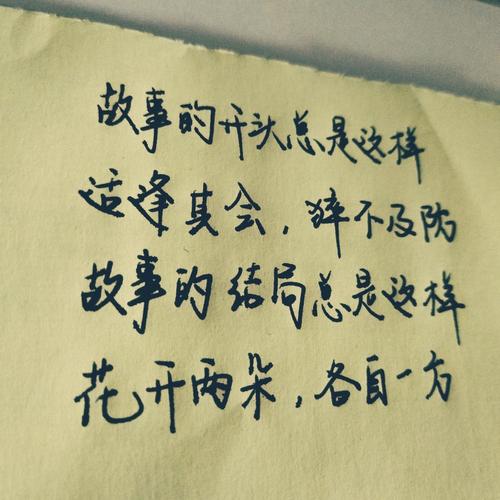 故事的开头总是这样
适逢其会，猝不及防
故事的结局总是这样
花开两朵，各自一方